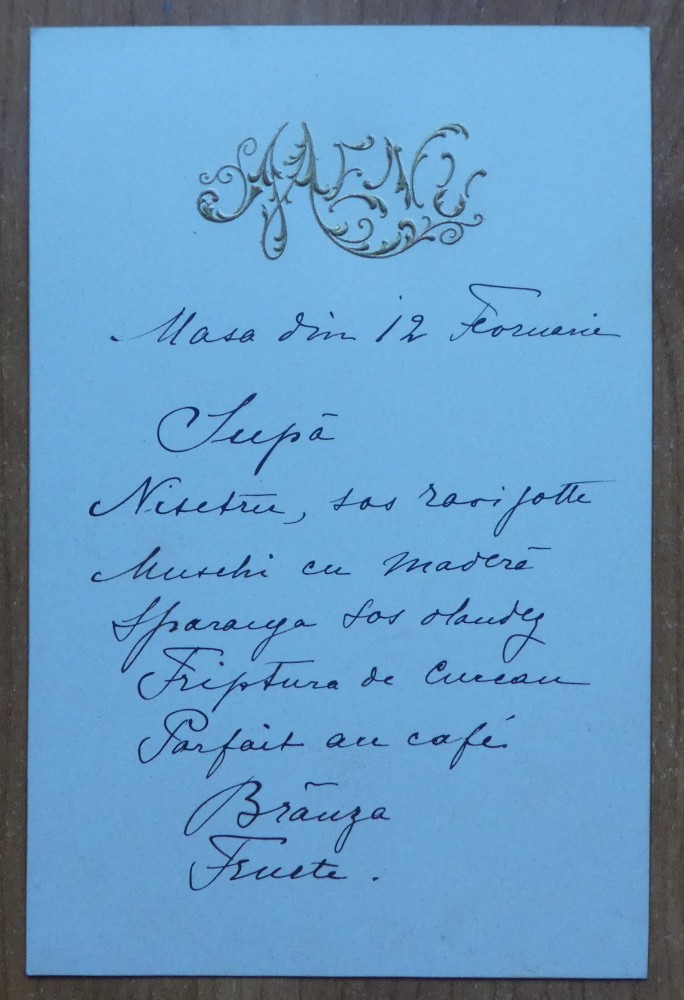 MENU
Masa din 12 Februarie
Supā
Nisetru, sos ravigotte
Muschi cu maderā
Sparanga sos olandez
Friptura de Curcan
Parfait au café
Brānza
Fructe.